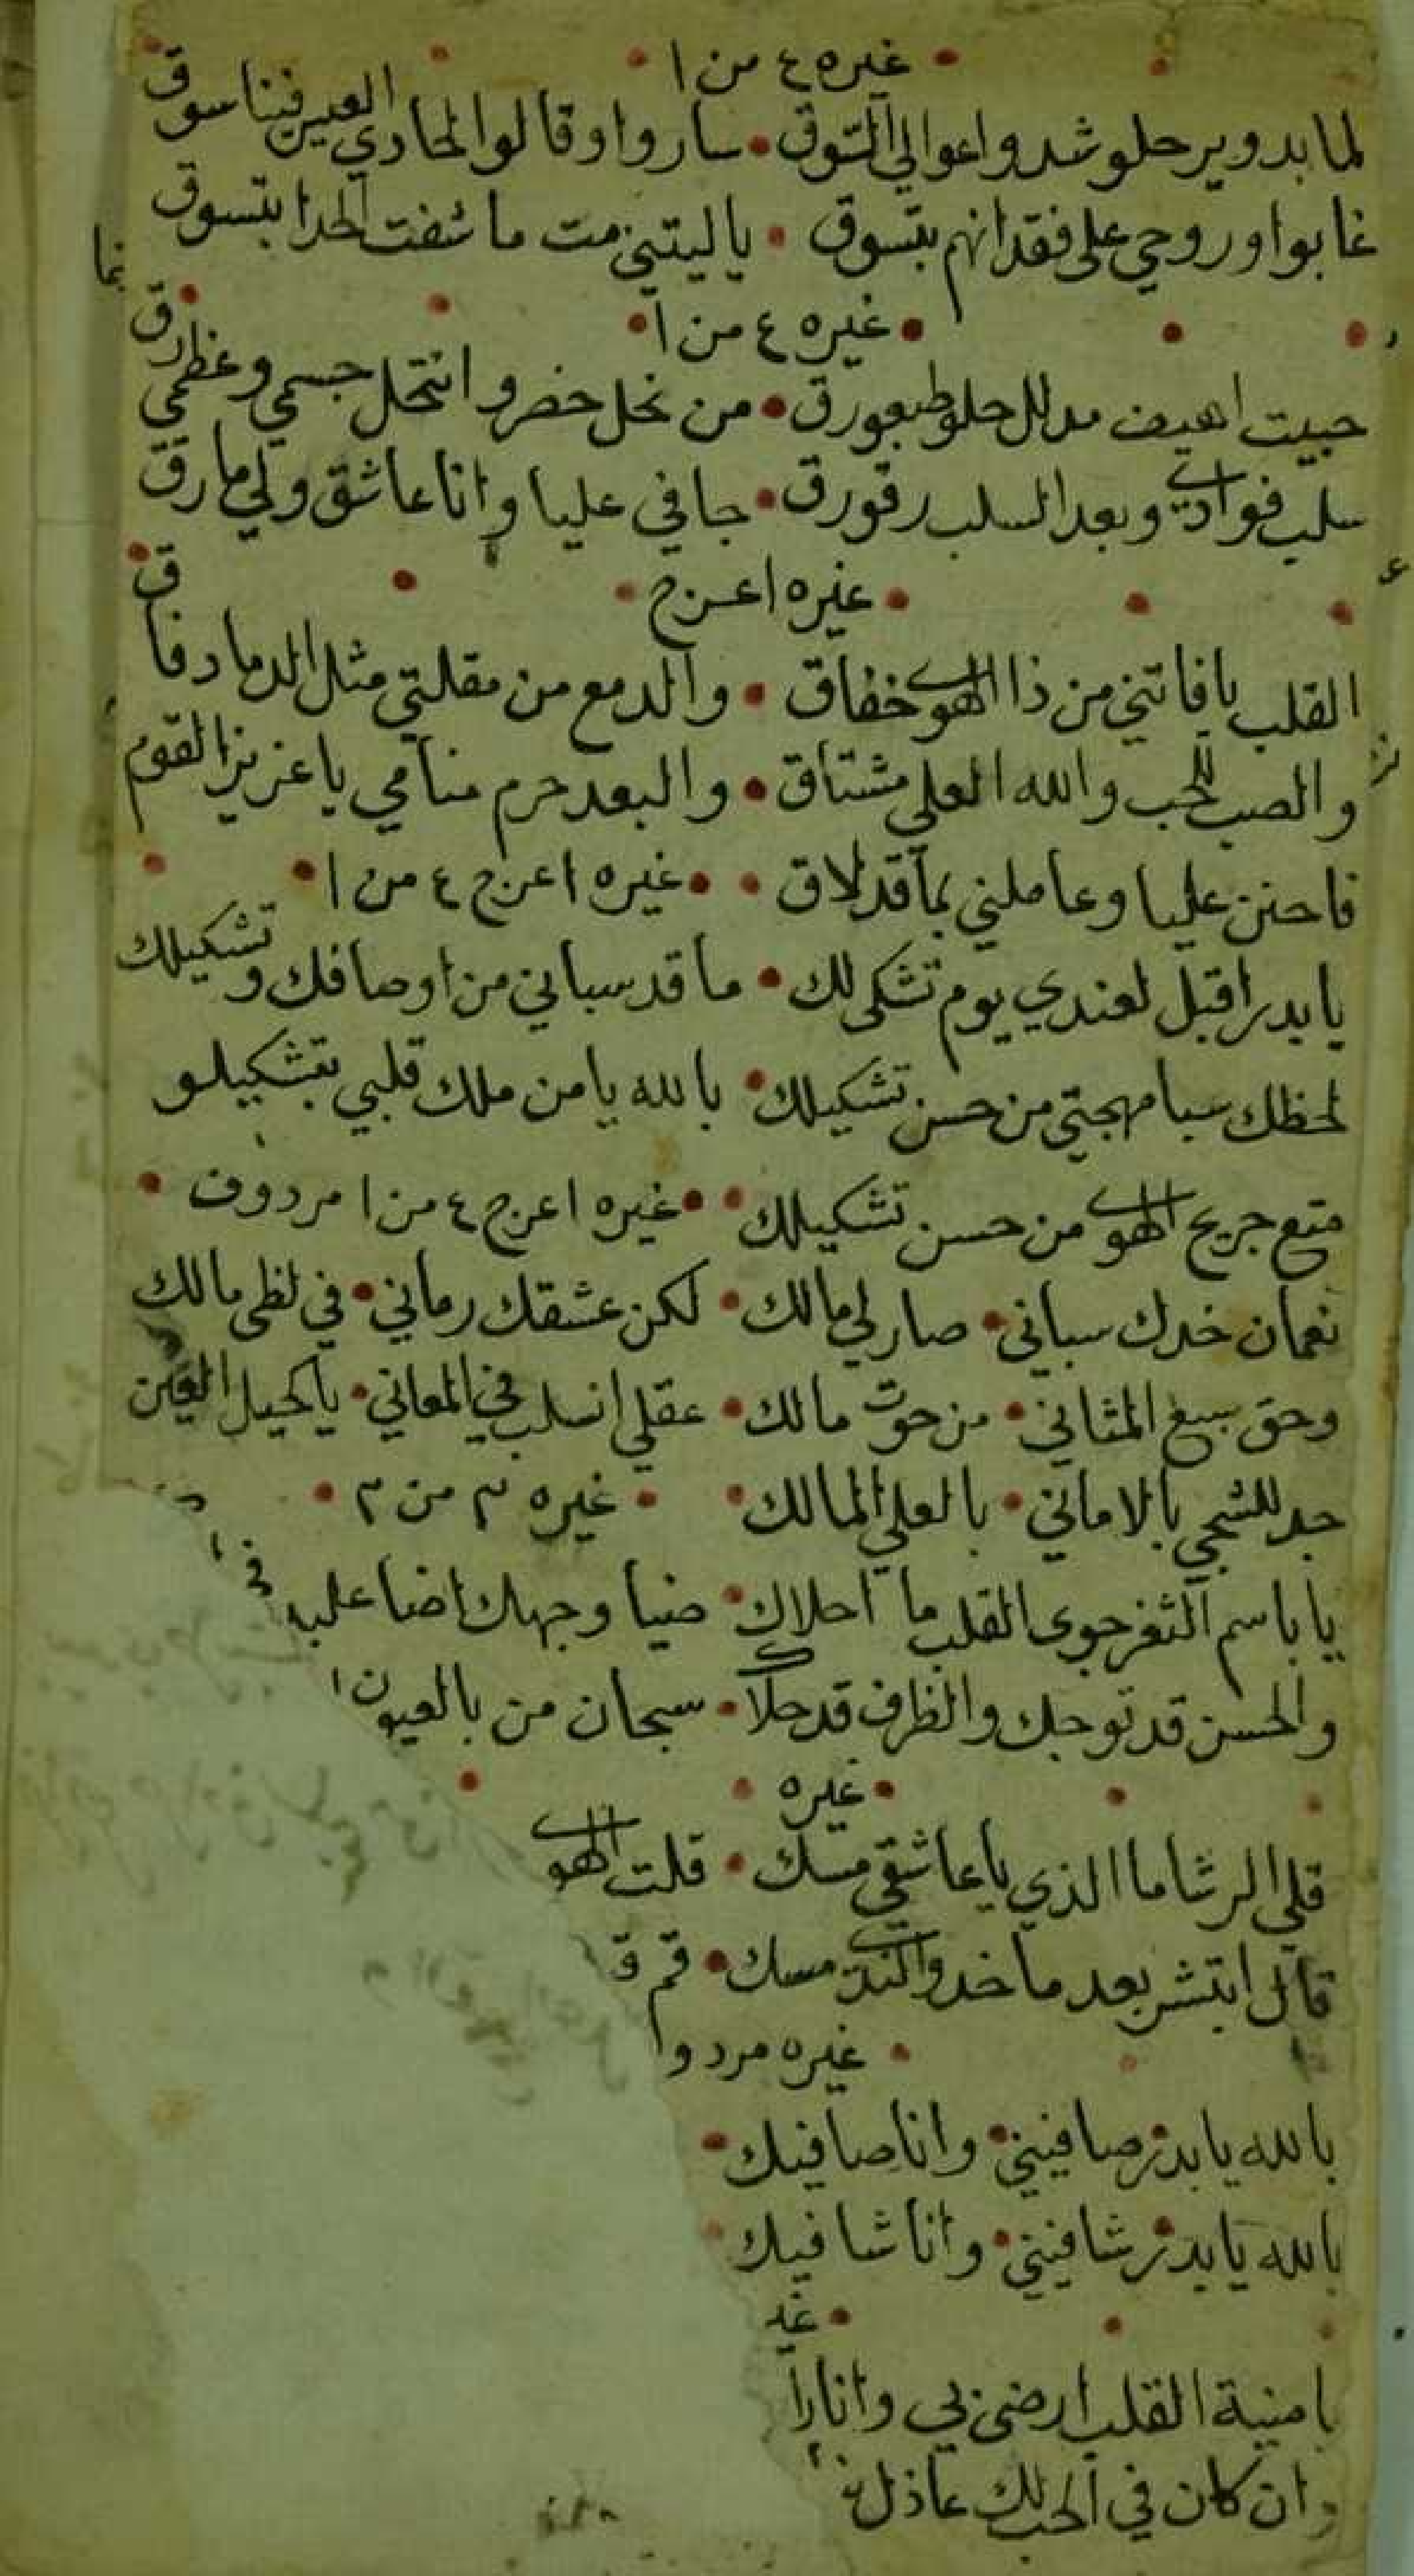 غيره ٤ من ١
لما بدو يرحلو شدوا عوالي السوق • ساروا وقالوا لحادي العير فينا سوق
غابوا وروحي على فقدانهم بتسوق • ياليتني مت ما شفت الحدا بتسوق
غيره ٤ من ١
حبيت اهيف مدلل حلو طبعو رق • من نحل خضرو انتحل جسمي وعظمي رق
سلب فوادي وبعد السلب رقو رق • جافي عليا وانا عاشق ولي ما رق
غيره اعرج
القلب يا فاتني من ذا الهوى خفاق • والدمع من مقلتي مثل الدما دفاق
والصب للحب والله العلي مشتاق • والبعد حرم منامي يا عزيز القوم
فاحنن عليا وعاملني بما قد لاق • • غيره اعرج ٤ من ١ •
يا بدر اقبل لعندي يوم تشكى لك • ما قد سباني من اوصافك وتشكيلك
لحظك سبا مهجتي من حسن تشكيلك • بالله يا من ملك قلبي بتشكيلو
متع جريح الهوى من حسن تشكيلك • • غيره اعرج ٤ من ١ مردوف •
نعمان خدك سباني • صار لي مالك • لكن عشقك رماني • في لظى مالك
وحق سبع المثاني • من حوت مالك • عقلي انسلب في المعاني • يا كحيل العين
جد للشجي بالاماني • بالعلي المالك • • غيره ٣ من ٣ •
يا باسم الثغر جوى القلب ما احلاك • ضيا وجهك اضا عليه
والحسن قد توجك والظرف قد حلاك • سبحان من بالعيون
غيره
قلي الرشا ما الذي يا عاشقي مسك • قلت الهوى
قال ابتشر بعد ما خدو الندى مسك • قم
غيره مردو
بالله يا بدر صافيني • وانا صافيك •
بالله يا بدر شافيني • وانا شافيك •
غير
يا منية القلب ارضى بي وانا را
وان كان في الحب لك عاذل